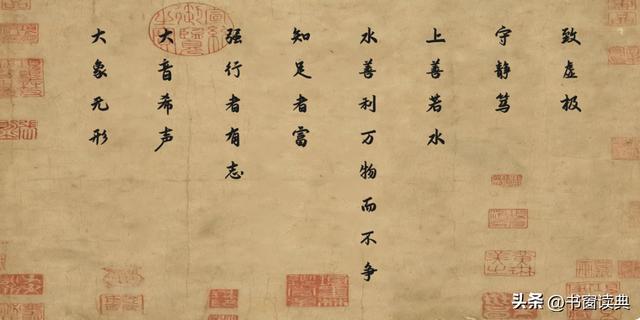 致虚极
守静笃
上善若水
水善利万物而不争
知足者富
强行者有志
大音希声
大象无形
头条 @书窗读典